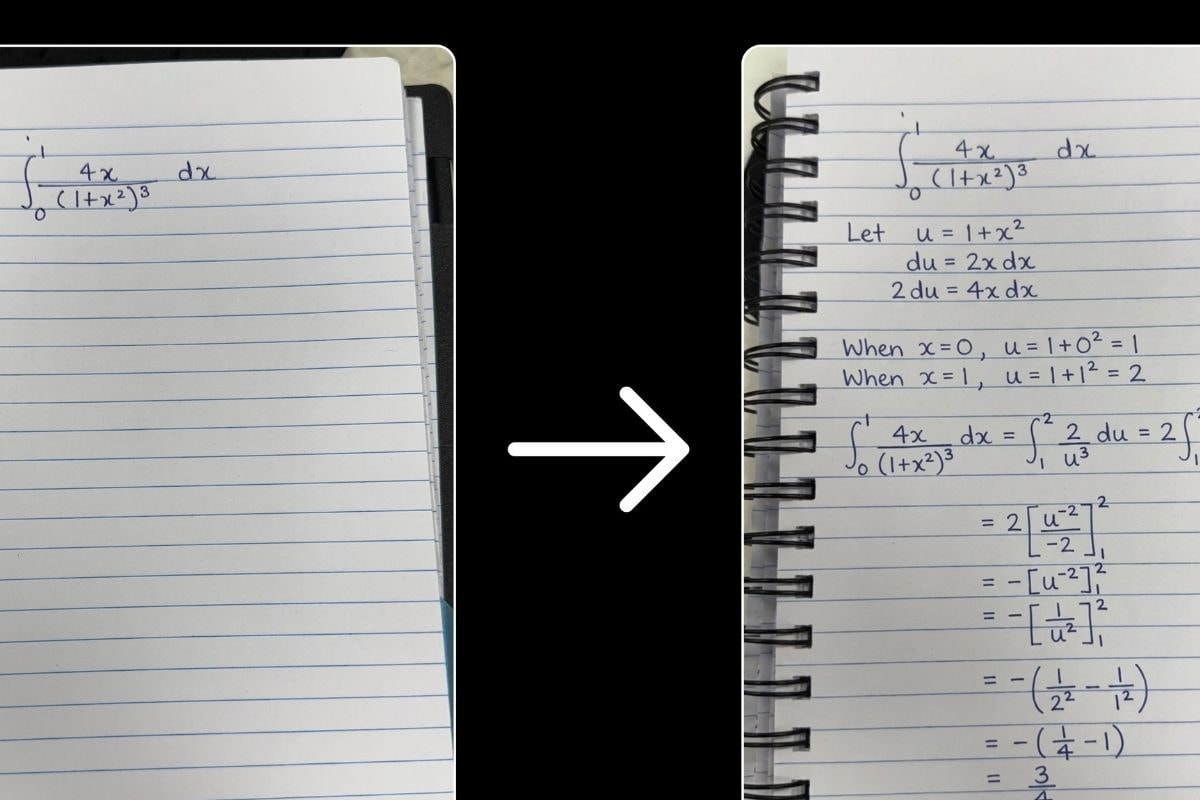 ∫₀¹ 4x/(1+x²)³ dx
∫₀¹ 4x/(1+x²)³ dx
Let u = 1+x²
du = 2x dx
2 du = 4x dx
When x=0, u = 1+0² = 1
When x=1, u = 1+1² = 2
∫₀¹ 4x/(1+x²)³ dx = ∫₁² 2/u³ du = 2∫₁
= 2[u⁻²/-2]₁²
= -[u⁻²]₁²
= -[1/u²]₁²
= -(1/2² - 1/1²)
= -(1/4 - 1)
= 3/4